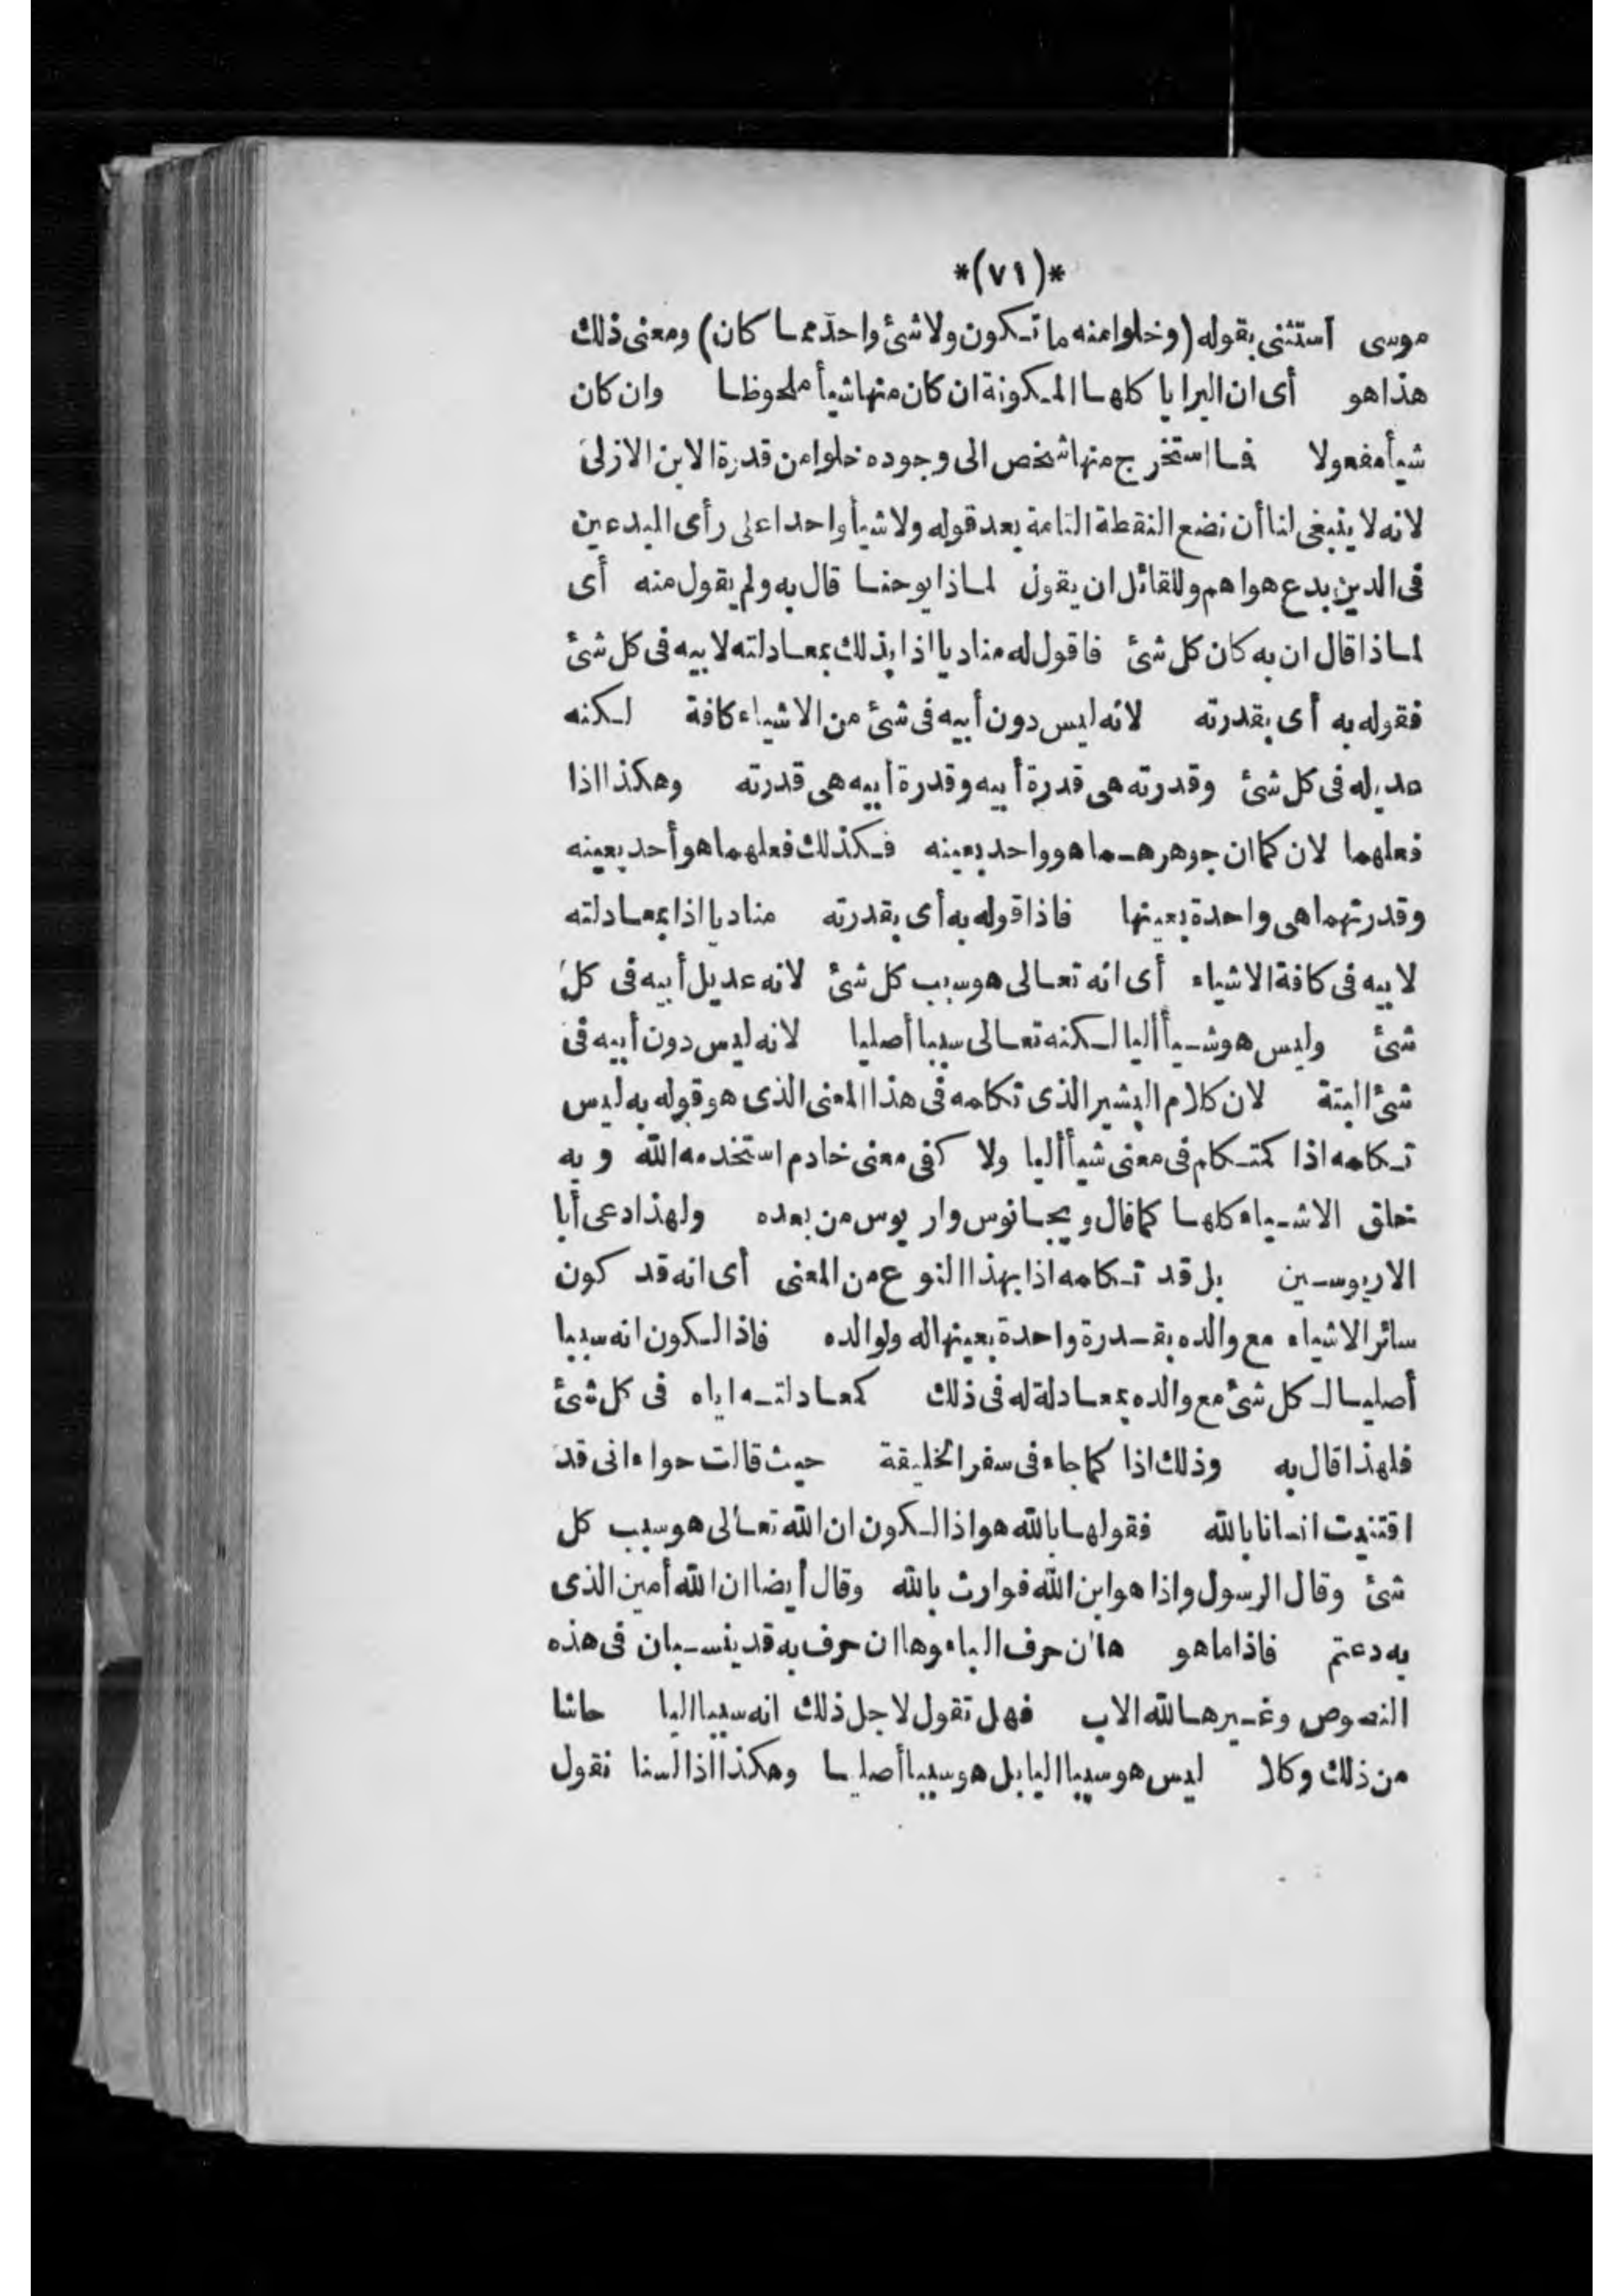 *(٧١)*
موسى استثنى بقوله (وخلوا منه ما تكون ولا شئ واحد مما كان) ومعنى ذلك
هذا هو أى ان البرايا كلها المكونة ان كان منها شيأ ملحوظا وان كان
شيأ مفعولا فما استخرج منها شخص الى وجوده خلوا من قدرة الابن الازلى
لانه لا ينبغى لنا أن نضع النقطة التامة بعد قوله ولا شيأ واحدا على رأى المبدعين
فى الدين بدع هواهم وللقائل ان يقول لماذا يوحنا قال به ولم يقول منه أى
لماذا قال ان به كان كل شئ فاقول له مناديا اذا بذلك بمعادلته لابيه فى كل شئ
فقوله به أى بقدرته لانه ليس دون أبيه فى شئ من الاشياء كافة لكنه
عديله فى كل شئ وقدرته هى قدرة أبيه وقدرة أبيه هى قدرته وهكذا اذا
فعلهما لان كما ان جوهرهما هو واحد بعينه فكذلك فعلهما هو أحد بعينه
وقدرتهما هى واحدة بعينها فاذا قوله به أى بقدرته مناديا اذا بمعادلته
لابيه فى كافة الاشياء أى انه تعالى هو سبب كل شئ لانه عديل أبيه فى كل
شئ وليس هو شيأ أليا لكنه تعالى سببا أصليا لانه ليس دون أبيه فى
شئ البتة لان كلام البشير الذى تكلمه فى هذا المعنى الذى هو قوله به ليس
تكلمه اذا كمتكلم فى معنى شيأ أليا ولا كفى معنى خادم استخدمه الله وبه
خلق الاشياء كلها كما قال ويجانوس واريوس من بعده ولهذا دعى أبا
الاريوسين بل قد تكلمه اذا بهذا النوع من المعنى أى انه قد كون
سائر الاشياء مع والده بقدرة واحدة بعينها له ولوالده فاذا لكون انه سببا
أصليا لكل شئ مع والده بمعادلة له فى ذلك كمعادلته اياه فى كل شئ
فلهذا قال به وذلك اذا كما جاء فى سفر الخليقة حيث قالت حواء انى قد
اقتنيت انسانا بالله فقولها بالله هو اذا لكون ان الله تعالى هو سبب كل
شئ وقال الرسول واذا هو ابن الله فوارث بالله وقال أيضا ان الله أمين الذى
به دعتم فاذا ما هو هاٰن حرف الباء وها ان حرف به قد ينسبان فى هذه
النصوص وغيرها لله الاب فهل تقول لاجل ذلك انه سببا اليا حاشا
من ذلك وكلا ليس هو سببا اليا بل هو سببا أصليا وهكذا اذا لسنا نقول